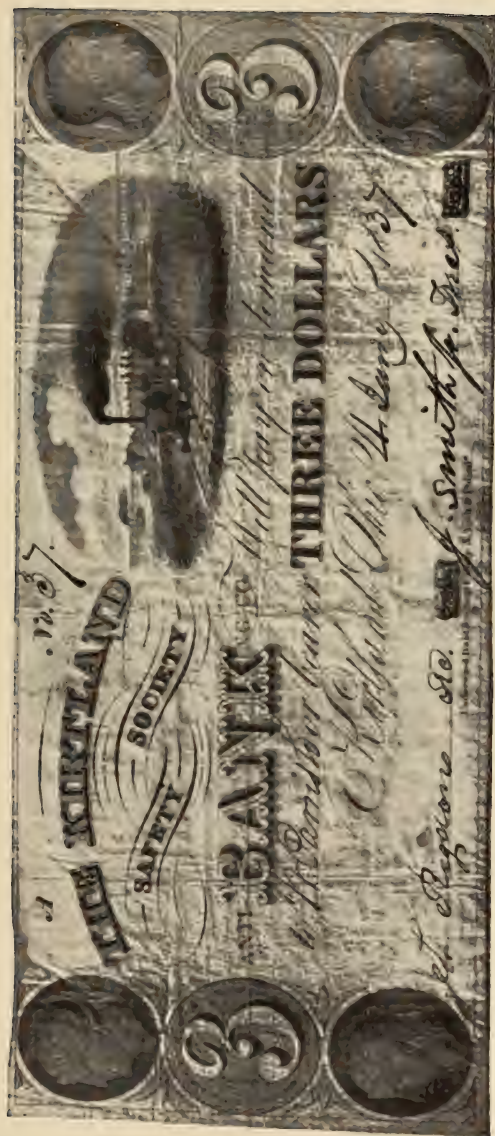 A
No. 37.
THE KIRTLAND
SAFETY SOCIETY
ANTI BANK ING CO Will pay on demand
to or bearer THREE DOLLARS
Kirtland Ohio 4 Jany 1837
S. Rigdon
J. Smith Jr.
3
3